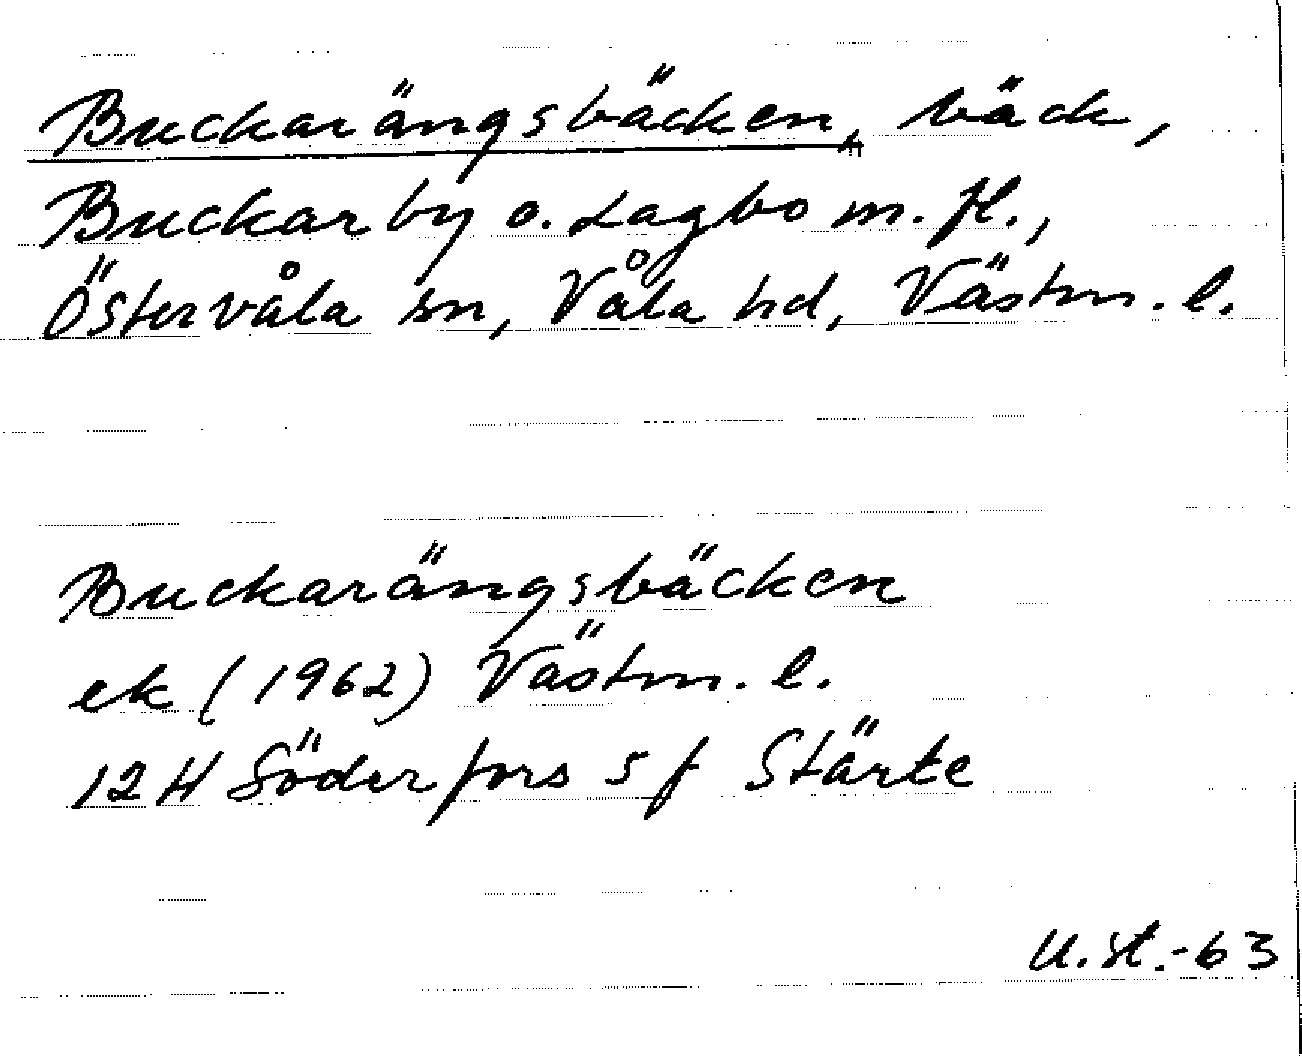 Buckarängsbäcken, bäck,
Buckarby o. Lagbo m. fl.,
Östervåla sn, Våla hd, Västm. l.
Buckarängsbäcken
ek (1962) Västm. l.
12 H Söderfors s f Stärte
U. St. -63